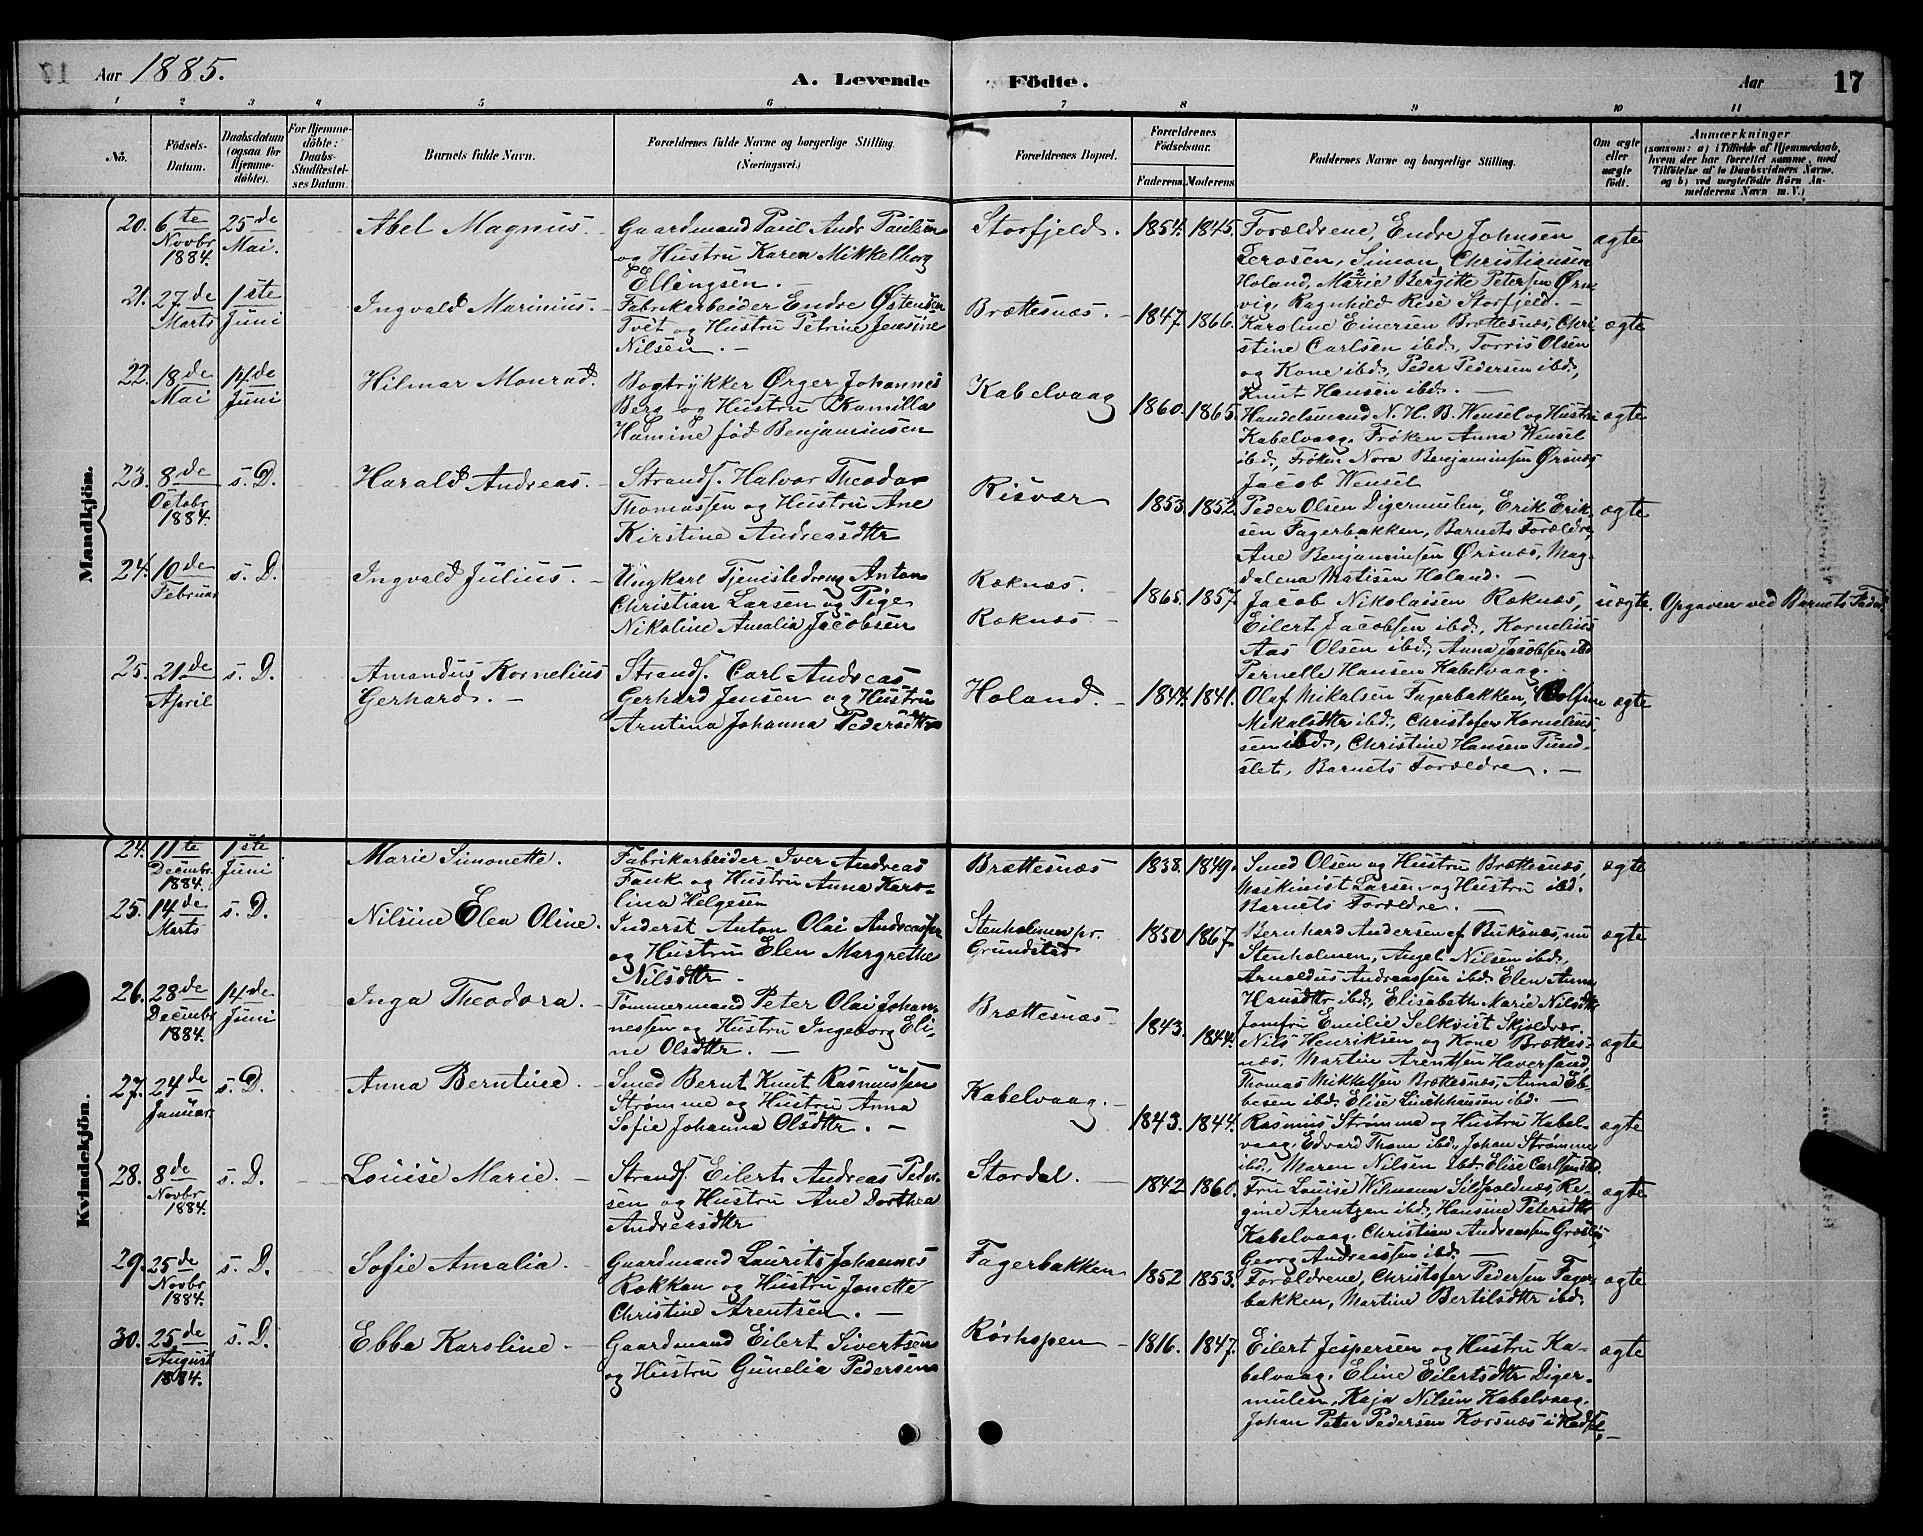 Aar 1885.
A. Levende
Födte.
Aar
17
1
2
3
4
5
6
7
8
9
10
11
No.
Födsels-
Datum.
Daabsdatum
(ogsaa for
Hjemme-
döbte).
For Hjemme-
döbte:
Daabs-
Stadfæstel-
ses Datum.
Barnets fulde Navn.
Forældrenes fulde Navne og borgerlige Stilling.
(Næringsvei.)
Forældrenes Bopæl.
Forældrenes
Födselsaar.
Faderens.
Moderens.
Faddernes Navne og borgerlige Stilling.
Om ægte
eller
uægte
födt.
Anmærkninger
(saasom: a) i Tilfælde af Hjemmedaab,
hvem der har forrettet samme, med
Tilföielse af to Daabsvidners Navne,
og b) ved uægtefödte Börn An-
melderens Navn m. V.)
Mandkjön.
20.
6te
Novbr
1884.
25de
Mai.
Abel Magnus.
Gaardmand Paul Andr Paulsen
og Hustru Karen Mikkelborg
Ellingsen.
Storfjeld.
1854.
1845.
Forældrene, Endre Johnsen
Lerosen, Simon Christiansen
Holand, Marie Bergitte Petersen Ørn-
vig, Ragnhild Rise Storfjeld. —
ægte
21.
27de
Marts
1ste
Juni
Ingvald Marinius.
Fabrikarbeider Endre Østensen
Tvet og Hustru Petrine Jensine
Nilsen. —
Brættesnæs.
1847.
1866.
Karoline Einersen Brættesnæs, Chri-
stine Carlsen ibd., Torris Olsen
og Kone ibd., Peder Pedersen ibd.,
Knut Hansen ibd. —
ægte
22.
18de
Mai
14de
Juni
Hilmar Monrad.
Bogtrykker Ørger Johannes
Berg og Hustru Kamilla
Hamine fød Benjaminsen
Kabelvaag
1860.
1865.
Handelsmand N. H. B. Wensel og Hustru
Kabelvaag. Frøken Anna Wensel
ibd., Frøken Nora Benjaminsen Ørsnæs,
Jacob Wensel
ægte
23.
8de
Octobr
1884.
s. D.
Harald Andreas.
Strands. Halvor Theodor
Thomassen og Hustru Ane
Kirstine Andreasdtr
Risvær
1853.
1852.
Peder Olsen Digermulen, Erik Erik-
sen Fagerbakken, Barnets Forældre,
Ane Benjaminsen Ørsnæs, Mag-
dalena Matisen Holand. —
ægte
24.
10de
Februar
s. D.
Ingvald Julius.
Ungkarl Tjenistedreng Anton
Christian Larsen og Pige
Nikoline Amalia Jacobsen
Ræknæs.
Ræknæs.
1865.
1857.
Jacob Nikolaisen Ræknæs,
Eilert Jacobsen ibd., Kornelius
Aas Olsen ibd., Anna Jacobsen ibd
Pernelle Hansen Kabelvaag.
uægte.
Opgaven ved Barnets Fader
25.
21de
April
s. D.
Amandus Kornelius
Gerhard. —
Strands. Carl Andreas
Gerhard Jensen og Hustru
Arntina Johanna Pedersdtr
Holand.
1844.
1841.
Olaf Mikalsen Fagerbakken,
Mikalsdtr ibd., Christofer Kornelius-
sen ibd., Christine Hansen Tind-
slet, Barnets Forældre. —
ægte
Kvindekjön.
24.
11te
Decembr
1884.
1ste
Juni
Marie Simonette.
Fabrikarbeider Iver Andreas
Fank og Hustru Anna Karo-
lina Helgesen
Brættesnæs
1838.
1849.
Smed Olsen og Hustru Brættesnæs,
Maskinist Larsen og Hustru ibd.
Barnets Forældre. —
ægte
25.
14de
Marts
s. D.
Nilsine Elen Oline.
Inderst Anton Olai Andreassen
og Hustru Elen Margrethe
Nilsdtr —
Stenholmen pr.
Grundstad
1850
1867.
Bernhard Andersen af Buksnæs, nu
Stenholmen, Angel Nilsen ibd.,
Arnoldus Andreassen ibd. Elen Anna
Hansdtr ibd., Elisabeth Marie Nilsdtr
ægte
26.
28de
Decembr
1884.
14de
Juni
Inga Theodora.
Tømmermand Peter Olai Johan-
nessen og Hustru Ingeborg Eli-
ne Olsdtr. —
Brættesnæs
1843.
1844.
Jomfru Emilie Selkvist Skjoldvær.
Nils Henriksen og Kone Brættes-
næs, Martin Arentsen Haversand,
Thomas Mikkelsen Brættesnæs, Anna Eb-
besen ibd. Elise Linckhausen ibd. —
ægte
27.
24de
Januar.
s. D.
Anna Berntine.
Smed Bernt Knut Rasmussen
Strømme og Hustru Anna
Sofie Johanna Olsdtr. —
Kabelvaag.
1843.
1844.
Rasmus Strømme og Hustru Kabel-
vaag, Edvard Thom ibd., Johan Strømme
ibd., Maren Nilsen ibd. Elise Carlsen ibd.
ægte
28.
8de
Novbr
1884.
s. D.
Louise Marie.
Strands. Eilert Andreas Peder-
sen og Hustru Ane Dorthea
Andreasdtr
Stordal.
1842
1860.
Fru Louise Wilmann Silpoldnæs, Re-
gine Arentzen ibd., Hansine Petersdtr
Kabelvaag, Christian Andreassen
Georg Andreassen ibd. —
ægte
29.
25de
Novbr
1884.
s. D.
Sofie Amalia.
Gaardmand Laurits Johannes
Rokkan og Hustru Jonette
Christine Arentsen. —
Fagerbakken
1852
1853.
Forældrene, Christofer Pedersen Fager-
bakken, Martine Bertilsdtr ibd.
ægte
30.
25de
August
1884.
s. D
Ebba Karoline.
Gaardmand Eilert Sivertsen
og Hustru Gunelia Pedersen
Rørhopen
1816.
1847.
Eilert Jespersen og Hustru Ka-
belvaag, Eline Eilertsdtr Diger-
mulen, Kaja Nilsen Kabelvaag.
Johan Peter Pedersen Korsnæs i
ægte